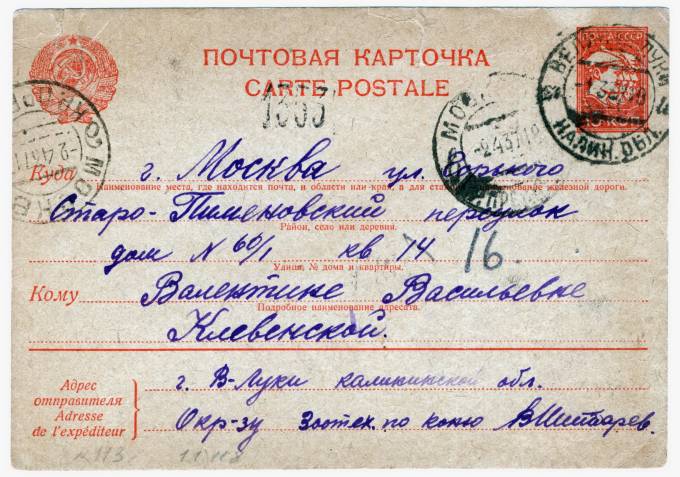 ПОЧТОВАЯ КАРТОЧКА
CARTE POSTALE
ПОЧТА СССР
10 КОП
1353
МОСКВА
-2.4.37
Куда г. Москва ул. Горького
Наименование места, где находится почта, и области или края, а для станции - наименование железной дороги.
Старо-Пименовский переулок
Район, село или деревня.
дом N 60/1 кв 14
16.
Улица, № дома и квартиры.
Кому Валентине Васильевне
Подробное наименование адресата.
Клевенской.
Адрес
отправителя
Adresse
de l'expéditeur
г. В-Луки калининской обл.
Окр-зу Зоотех. по коню